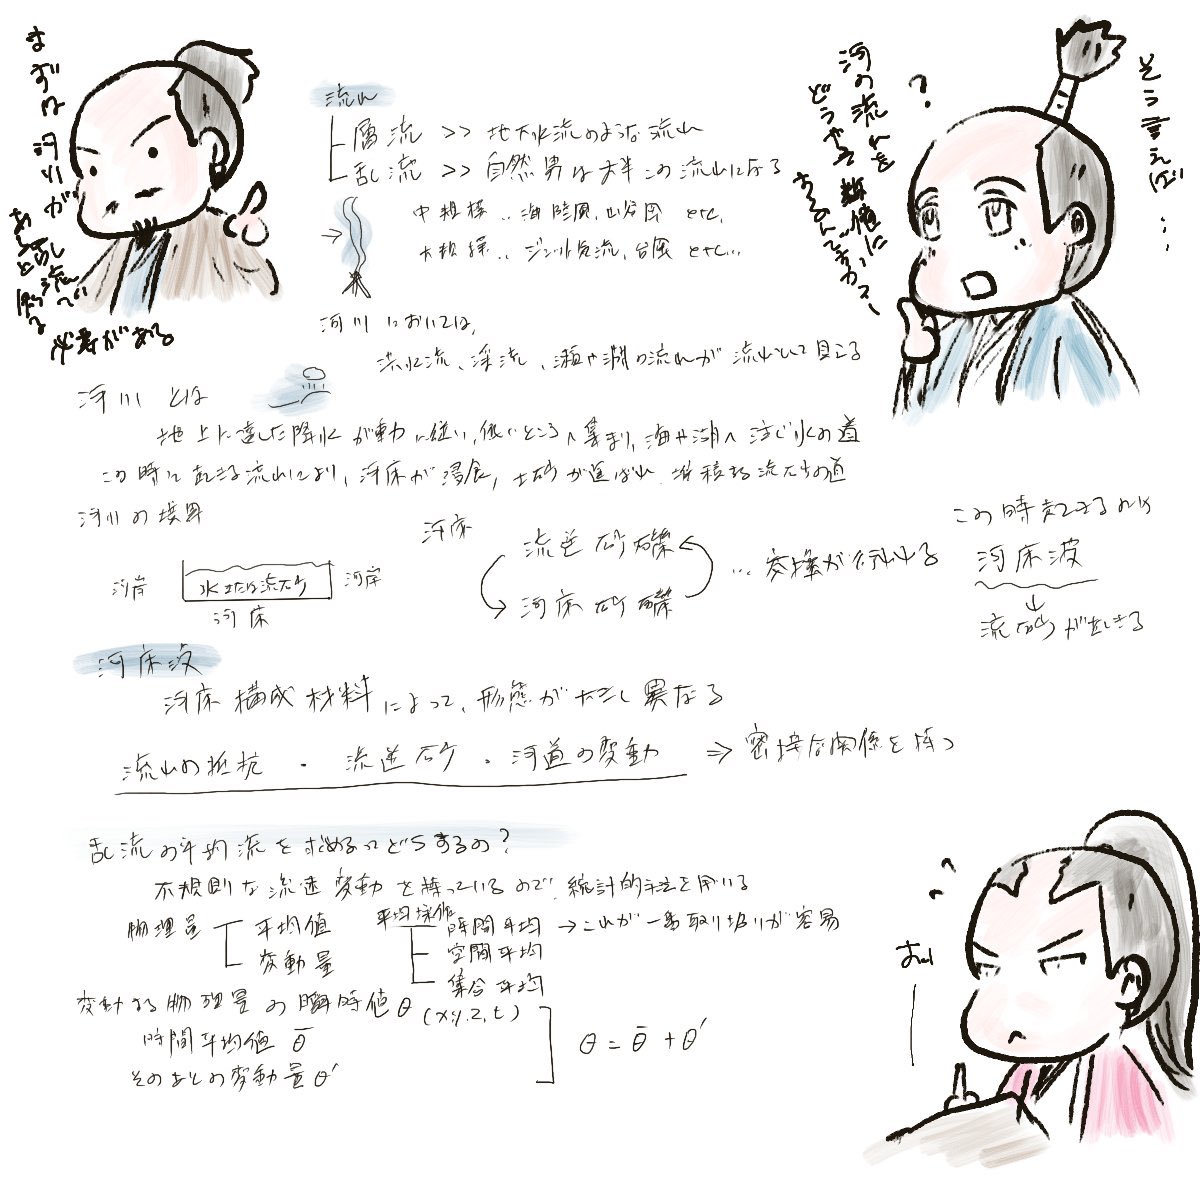 そう言えば…
河の流れを
どうやって数値に
するんですカァー
?
まずは河川が
あ
必要がある
流れ
層流 >> 地下水流のような流れ
乱流 >> 自然界は大半この流れになる
中規模‥海陸風,山谷風 etc,
大規模‥ジェット気流,台風 etc…
河川においては,
洪水流、渓流、瀬や淵の流れが流れとして見こる
河川とは
地上に達した降水が動に従い,低いところへ集まり,海や湖へ注ぐ水の道
この時に起きる流れにより,河床が浸食,土砂が運ばれ 堆積する流れの道
河川の境界
河岸 水または流砂 河岸
河床
河床
流送砂礫
河床砂礫
…交換が行われる
この時起こるのは
河床波
↓
流砂が起きる
河床波
河床構成材料によって、形態が大きく異なる
流れの抵抗・流送砂・河道の変動 ⇒ 密接な関係を持つ
乱流の平均流を求めるってどうするの?
不規則な流速変動を持っているので、統計的手法を用いる
物理量 平均値
変動量
平均操作 時間平均 →これが一番取り扱りが容易
空間平均
集合平均
変動する物理量の瞬時値θ (x,y,z,t)
時間平均値 θ̄
そのあとの変動量θ′
θ = θ̄ + θ′